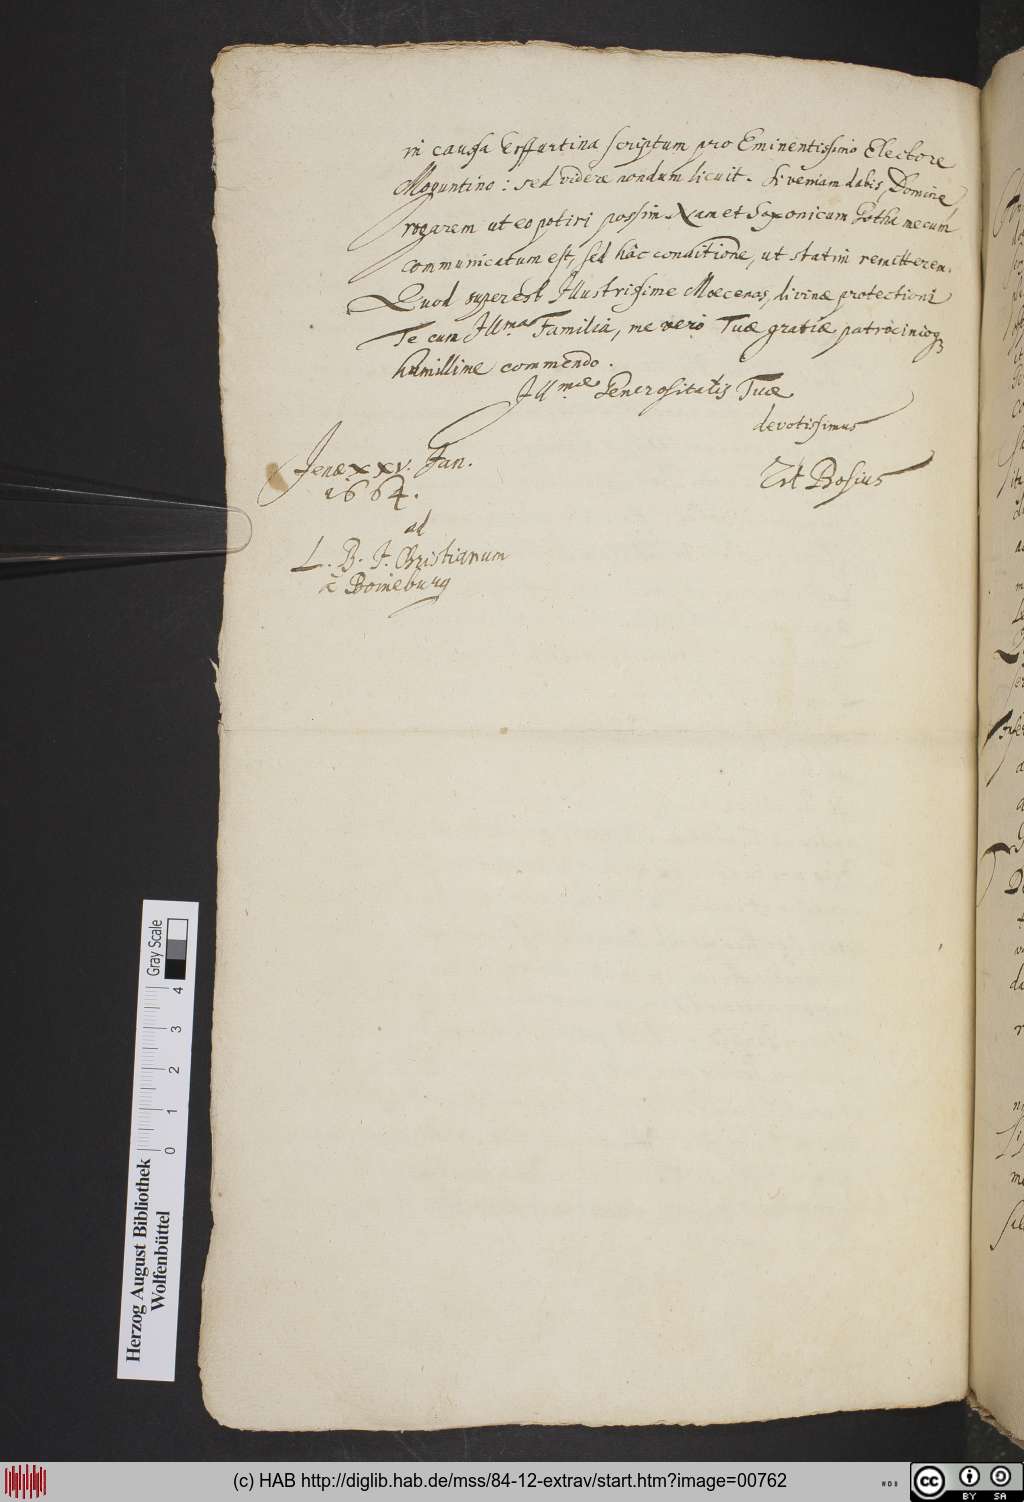 in caussa Erffurtina scriptum pro Eminentissimo Electore
Moguntino: sed videre nondum licuit. Si veniam dabis, Domine,
rogarem ut eo potiri possim. Nam et Saxonicum Gotha mecum
communicatum est, sed hâc conditione, ut statim remitterem.
Quod superest Illustrissime Moecenas, divinae protectioni
Te cum Ill.ma Familia, me vero Tuae gratiae patrocinioq;
humillime commendo.
Ill.mae Generositatis Tuae
devotissimus
Jenae xxv. Jan.
1664.
Bosius
ad
L. B. J. Christianum
à Boineburg
Gray Scale
0 1 2 3 4
Herzog August Bibliothek
Wolfenbüttel
(c) HAB http://diglib.hab.de/mss/84-12-extrav/start.htm?image=00762
cc BY SA